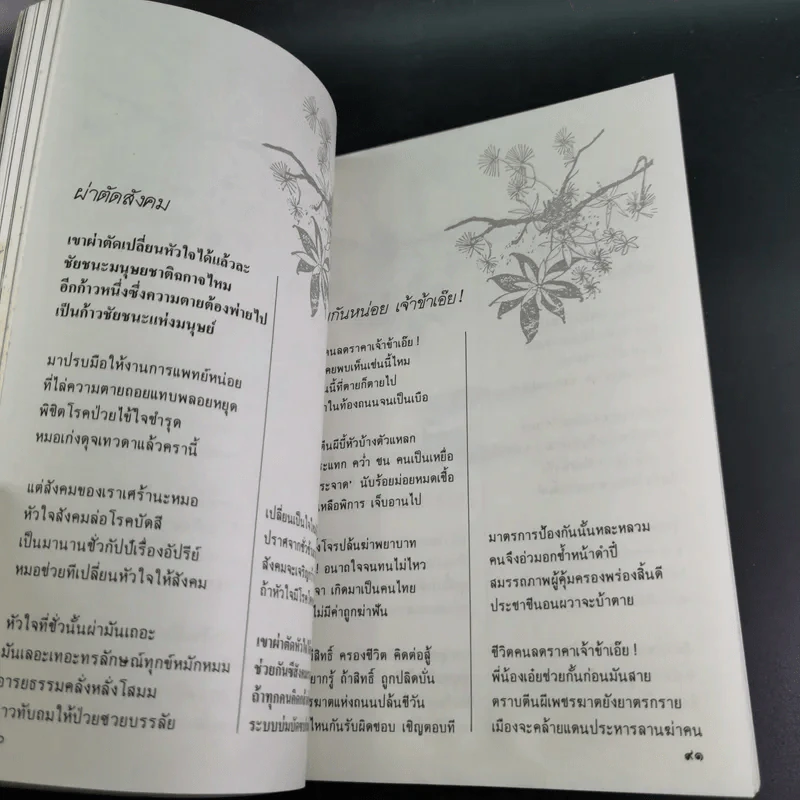 ผ่าตัดสังคม
เขาผ่าตัดเปลี่ยนหัวใจได้แล้วละ
ชัยชนะมนุษยชาติฉกาจไหม
อีกก้าวหนึ่งซึ่งความตายต้องพ่ายไป
เป็นก้าวชัยชนะแห่งมนุษย์
มาปรบมือให้งานการแพทย์หน่อย
ที่ไล่ความตายถอยแทบพลอยหยุด
พิชิตโรคป่วยไข้ใจชำรุด
หมอเก่งดุจเทวดาแล้วครานี้
แต่สังคมของเราเศร้านะหมอ
หัวใจสังคมล่อโรคบัดสี
เป็นมานานชั่วกัปป์เรื่องอัปรีย์
หมอช่วยทีเปลี่ยนหัวใจให้สังคม
หัวใจที่ชั่วนั้นผ่ามันเถอะ
มันเลอะเทอะทรลักษณ์ทุกข์หมักหมม
อารยธรรมคลั่งหลั่งโสมม
าวทับถมให้ป่วยซวยบรรลัย
เปลี่ยนเป็นใจ
ปราศจากชั่ว
สังคมจะเจริญ
ถ้าหัวใจมีโรค
เขาผ่าตัดหัวใจ
ช่วยกันซีสังคม
ถ้าทุกคนคิด
ระบบ
กันหน่อย เจ้าข้าเอ๊ย!
คนลดราคาเจ้าข้าเอ๊ย!
คยพบเห็นเช่นนี้ไหม
นนี้ที่ตายก็ตายไป
ในท้องถนนจนเป็นเบือ
ตีนผีบี้หัวบ้างตัวแหลก
ะแทก คว่ำ ชน คนเป็นเหยื่อ
ระจาด' นับร้อยม่อยหมดเชื้อ
เหลือพิการ เจ็บอานไป
งโจรปล้นฆ่าพยาบาท
! อนาถใจจนทนไม่ไหว
จา เกิดมาเป็นคนไทย
ไม่มีค่าถูกฆ่าฟัน
สิทธิ์ ครองชีวิต คิดต่อสู้
ยากรู้ ถ้าสิทธิ์ ถูกปลิดบั่น
ฆาตแห่งถนนปล้นชีวัน
ไหนกันรับผิดชอบ เชิญตอบที
มาตรการป้องกันนั้นหละหลวม
คนจึงอ่วมอกช้ำหน้าดำปี๋
สมรรถภาพผู้คุ้มครองพร่องสิ้นดี
ประชาชีนอนผวาจะบ้าตาย
ชีวิตคนลดราคาเจ้าข้าเอ๊ย!
พี่น้องเอ๋ยช่วยกั้นก่อนมันสาย
ตราบตีนผีเพชรฆาตยังยาตรกราย
เมืองจะคล้ายแดนประหารลานฆ่าคน
๙๑